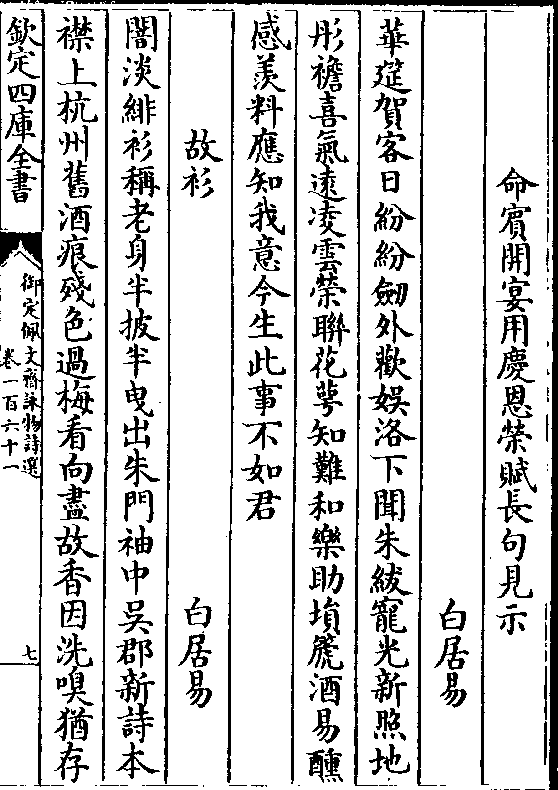 命賓開宴用慶恩榮賦長句見示
白居易
華筵賀客日紛紛劒外歡娛洛下聞朱紱寵光新照地
彤襜喜氣遠凌雲榮聯花萼知難和樂助塤篪酒易醺
感羨料應知我意今生此事不如君
故衫
白居易
闇淡緋衫稱老身半披半曳出朱門袖中吳郡新詩本
襟上杭州舊酒痕殘色過梅看向盡故香因洗嗅猶存
欽定四庫全書
御定佩文齋詠物詩選
卷一百六十一
七